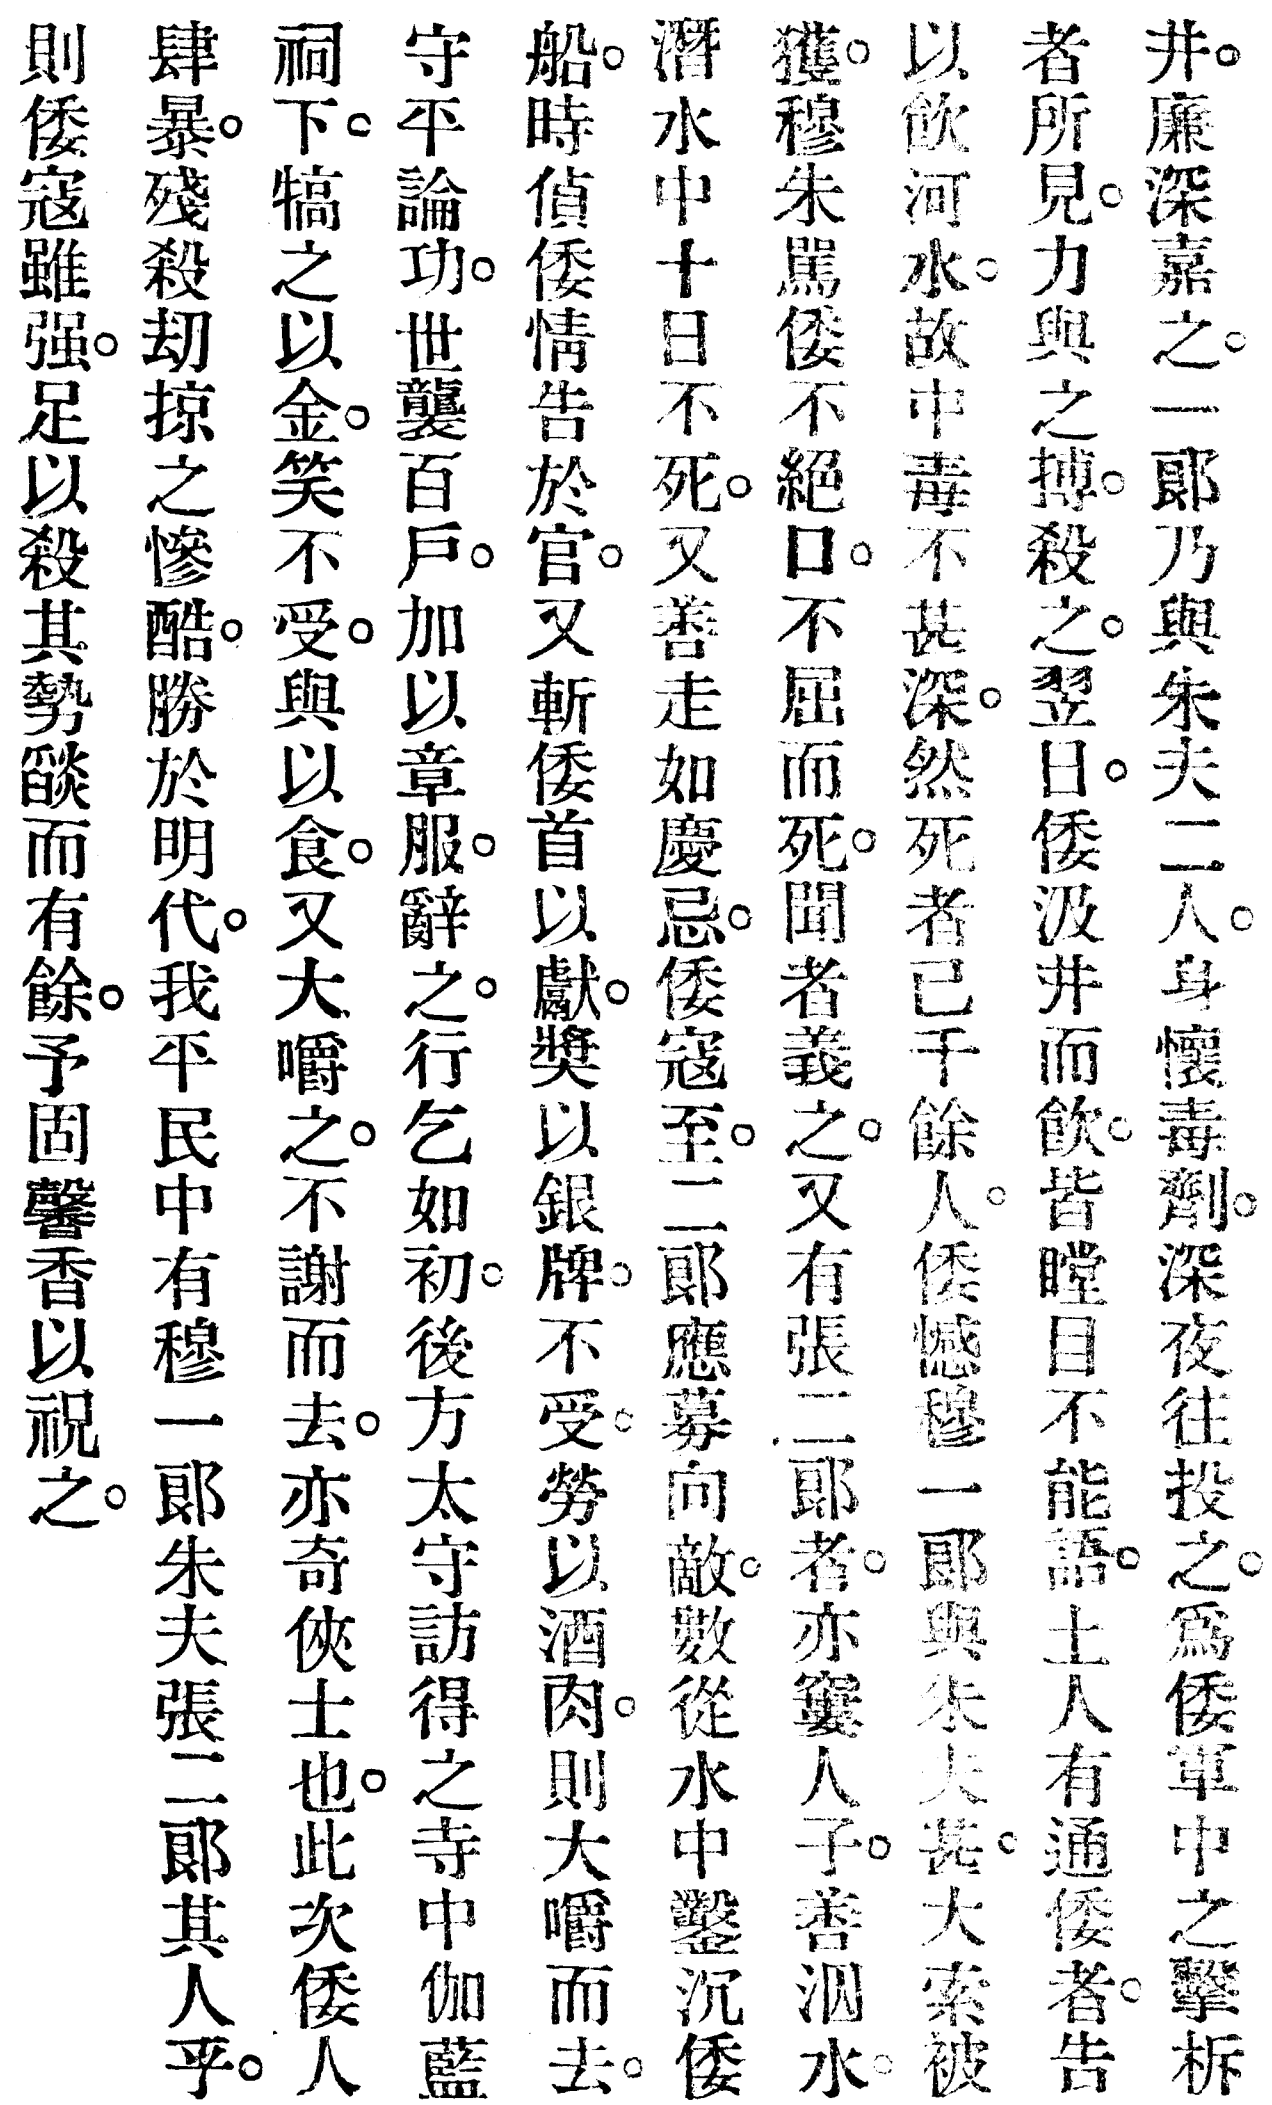 井。廉深嘉之。一郞乃與朱夫二人。身懷毒劑。深夜往投之。爲倭軍中之擊柝
者所見。力與之搏。殺之。翌日。倭汲井而飮。皆瞠目不能語。土人有通倭者。告
以飮河水。故中毒不甚深。然死者已千餘人。倭憾穆一郞與朱夫甚。大索被
獲。穆朱駡倭不絕口。不屈而死。聞者義之。又有張二郞者。亦窶人子。善泅水。
潛水中十日不死。又善走如慶忌。倭寇至。二郞應募向敵。數從水中鑿沉倭
船。時偵倭情告於官。又斬倭首以獻。獎以銀牌。不受。勞以酒肉。則大嚼而去。
守平論功。世襲百戶。加以章服。辭之。行乞如初。後方太守訪得之寺中伽藍
祠下。犒之以金。笑不受。與以食。又大嚼之。不謝而去。亦奇俠士也。此次倭人
肆暴。殘殺刧掠之慘酷。勝於明代。我平民中有穆一郞朱夫張二郞其人乎。
則倭寇雖强。足以殺其勢燄而有餘。予固馨香以祝之。